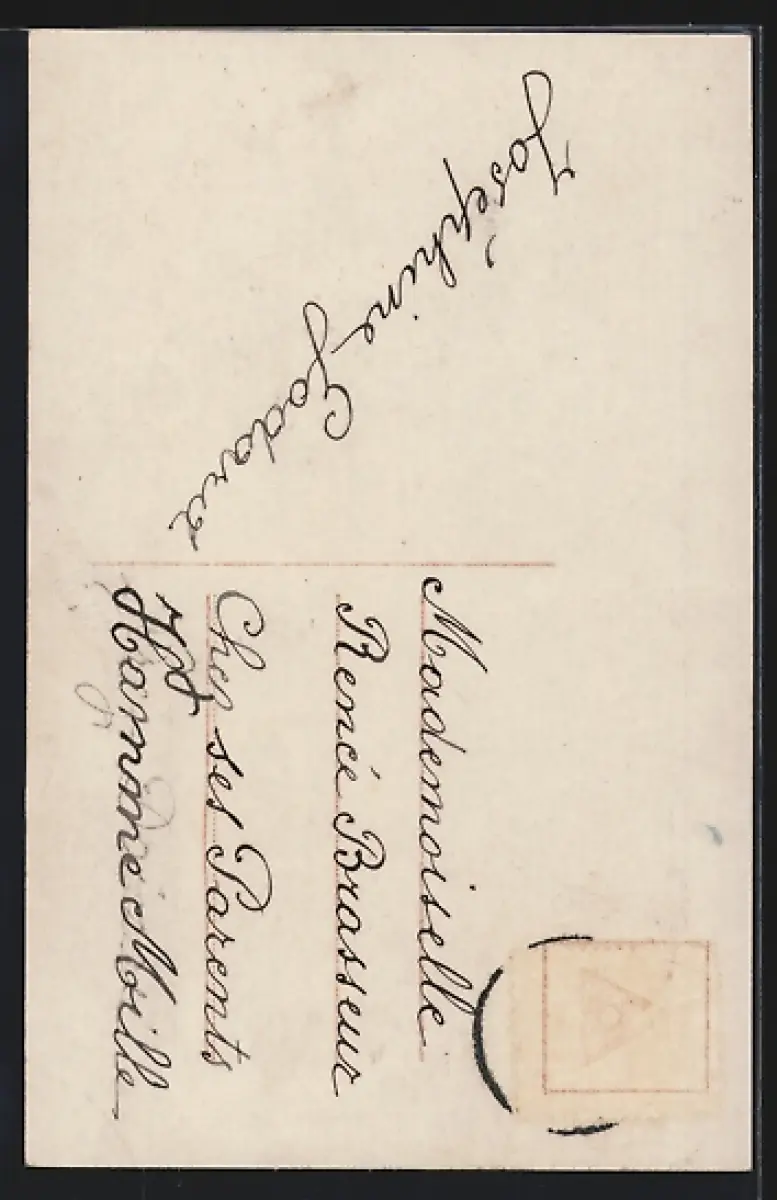 Joséphine Godard
Mademoiselle
Renée Brasseur
Chez ses Parents
Hammé Mille